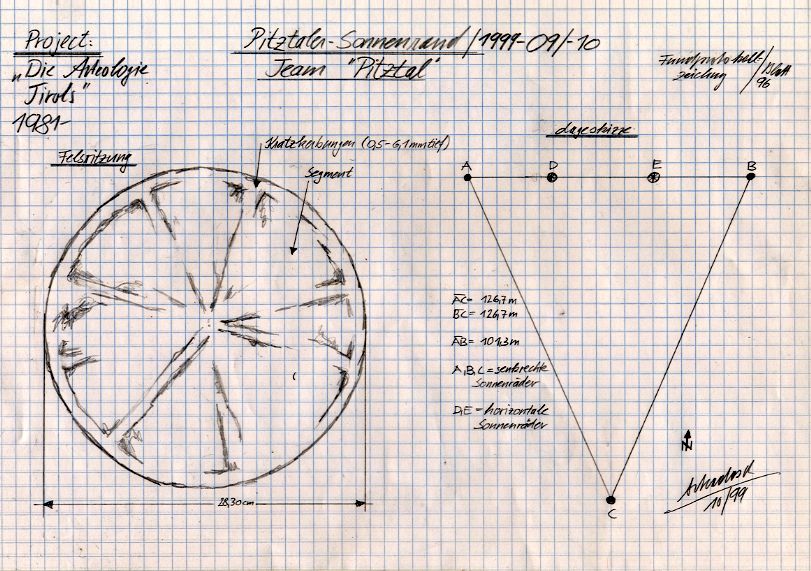 Project:
"Die Arteologie
Tirols"
1981-
Pitztaler-Sonnenrand/1999-09/-10
Team "Pitztal"
Fundprotokoll-
zeichung
/Blatt
96
Felsritzung
Kratzkerbungen (0,5-6,1mm tief)
Segment
28,30cm
Lageskizze
A
D
E
B
AC= 126,7m
BC= 126,7m
AB= 101,3m
A,B,C = senkrechte
Sonnenräder
D,E = horizontale
Sonnenräder
N
C
10/99